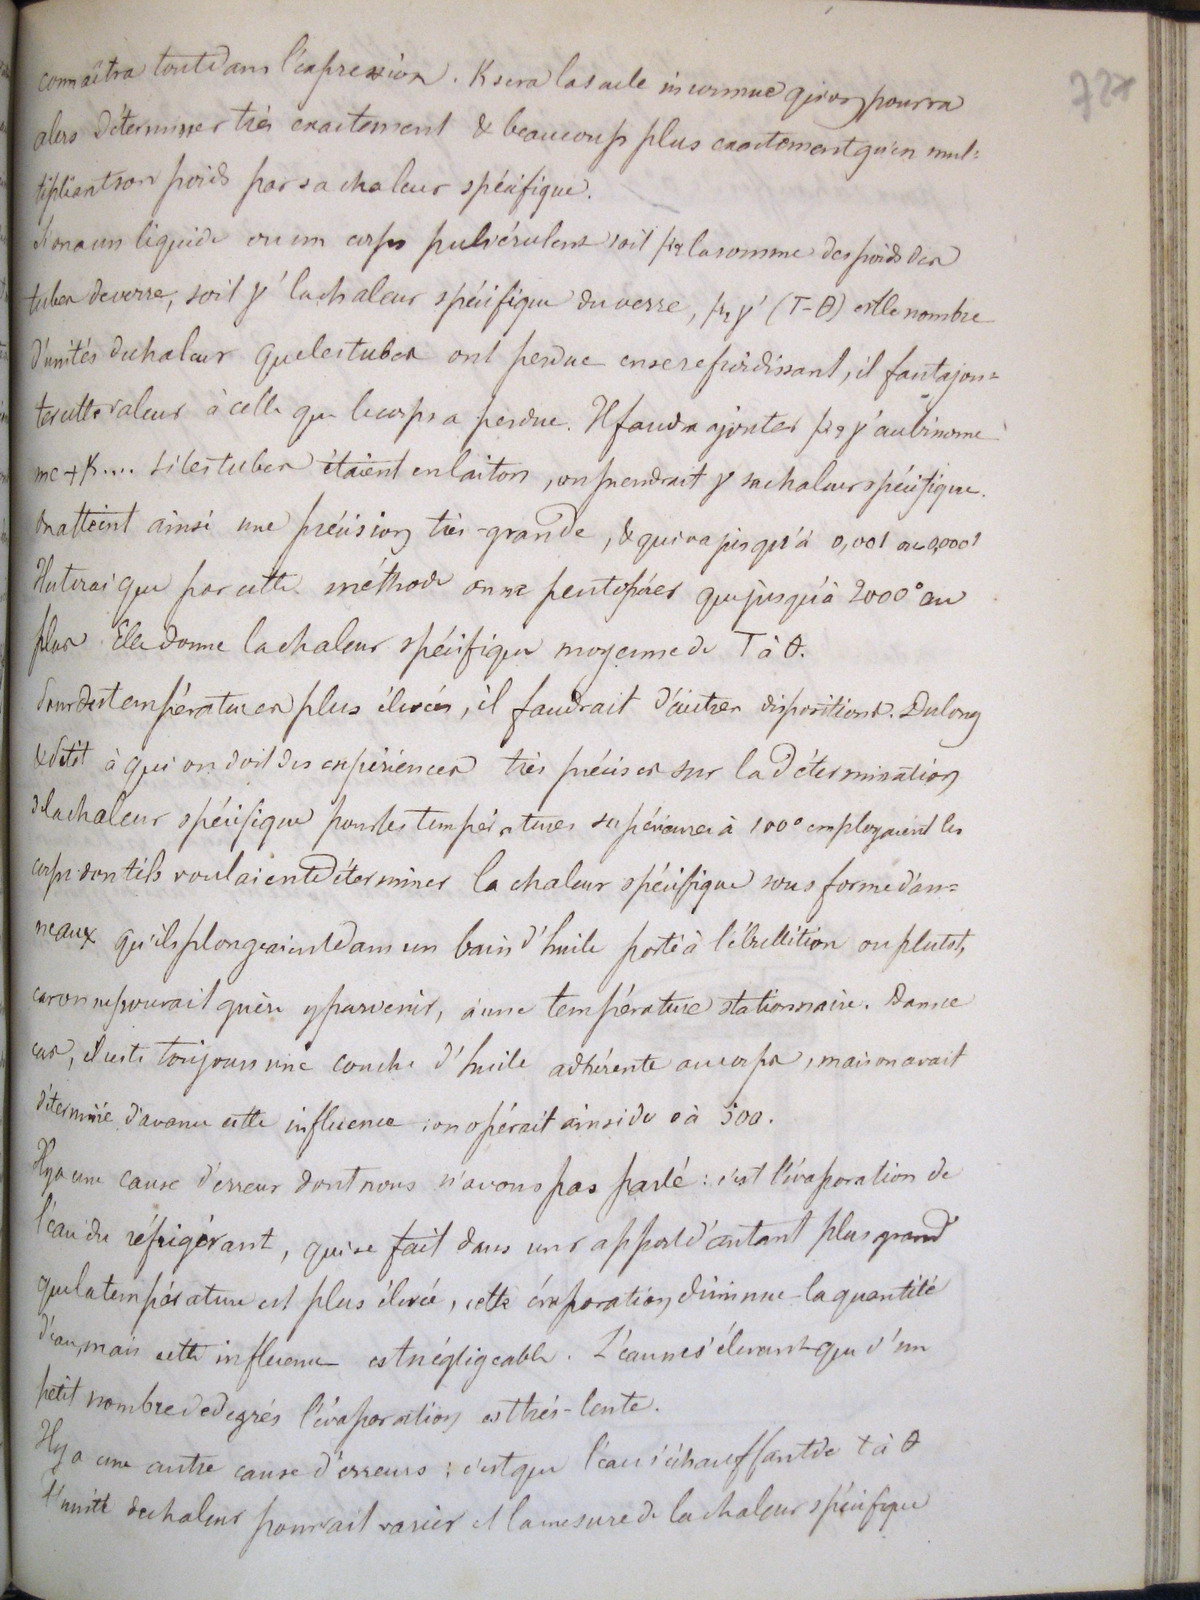 727
connaîtra tout dans l'expression. K sera la seule inconnue qu'on pourra
alors déterminer très exactement & beaucoup plus exactement qu'en mul=
tipliant son poids par sa chaleur spécifique.
Si on a un liquide ou un corps pulvérulent soit p₂ la somme des poids des
tubes de verre, soit γ' la chaleur spécifique du verre, p₂ γ' (T-θ) est le nombre
d'unités de chaleur que les tubes ont perdue en se refroidissant, il faut ajou=
ter cette valeur à celle que le corps a perdue. Il faudra ajouter p₂ γ' au binome
mc + K.... si les tubes étaient en laiton, on prendrait γ sa chaleur spécifique.
On atteint ainsi une précision très-grande, & qui va jusqu'à 0,001 ou 0,0001
Il est vrai que par cette méthode on ne peut opérer que jusqu'à 2000° au
plus Elle donne la chaleur spécifique moyenne de T à θ.
Pour des températures plus élevées, il faudrait d'autres dispositions. Dulong
& Petit à qui on doit des expériences très précises sur la détermination
de la chaleur spécifique pour les températures supérieures à 100° employaient les
corps dont ils voulaient déterminer la chaleur spécifique sous forme d'an=
neaux qu'ils plongeaient dans un bain d'huile porté à l'ébullition ou plutôt,
car on ne pouvait guère y parvenir, à une température stationnaire. Dans ce
cas, il reste toujours une couche d'huile adhérente au corps, mais on avait
déterminé d'avance cette influence : on opérait ainsi de 0 à 300.
Il y a une cause d'erreur dont nous n'avons pas parlé : c'est l'évaporation de
l'eau du réfrigérant, qui se fait dans un rapport d'autant plus grand
que la température est plus élevée, cette évaporation diminue la quantité
d'eau, mais cette influence est négligeable. L'eau ne s'élevant que d'un
petit nombre de degrés l'évaporation est très-lente.
Il y a une autre cause d'erreurs : c'est que l'eau s'échauffant de t à θ
l'unité de chaleur pourrait varier et la mesure de la chaleur spécifique